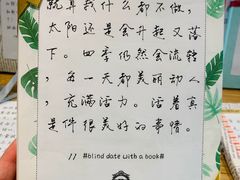 就算我什么都不做，
太阳还是会升起又落
下。四季仍然会流转，
每一天都美丽动人
，充满活力。活着真
是件很美好的事情。
// #blind date with a book#